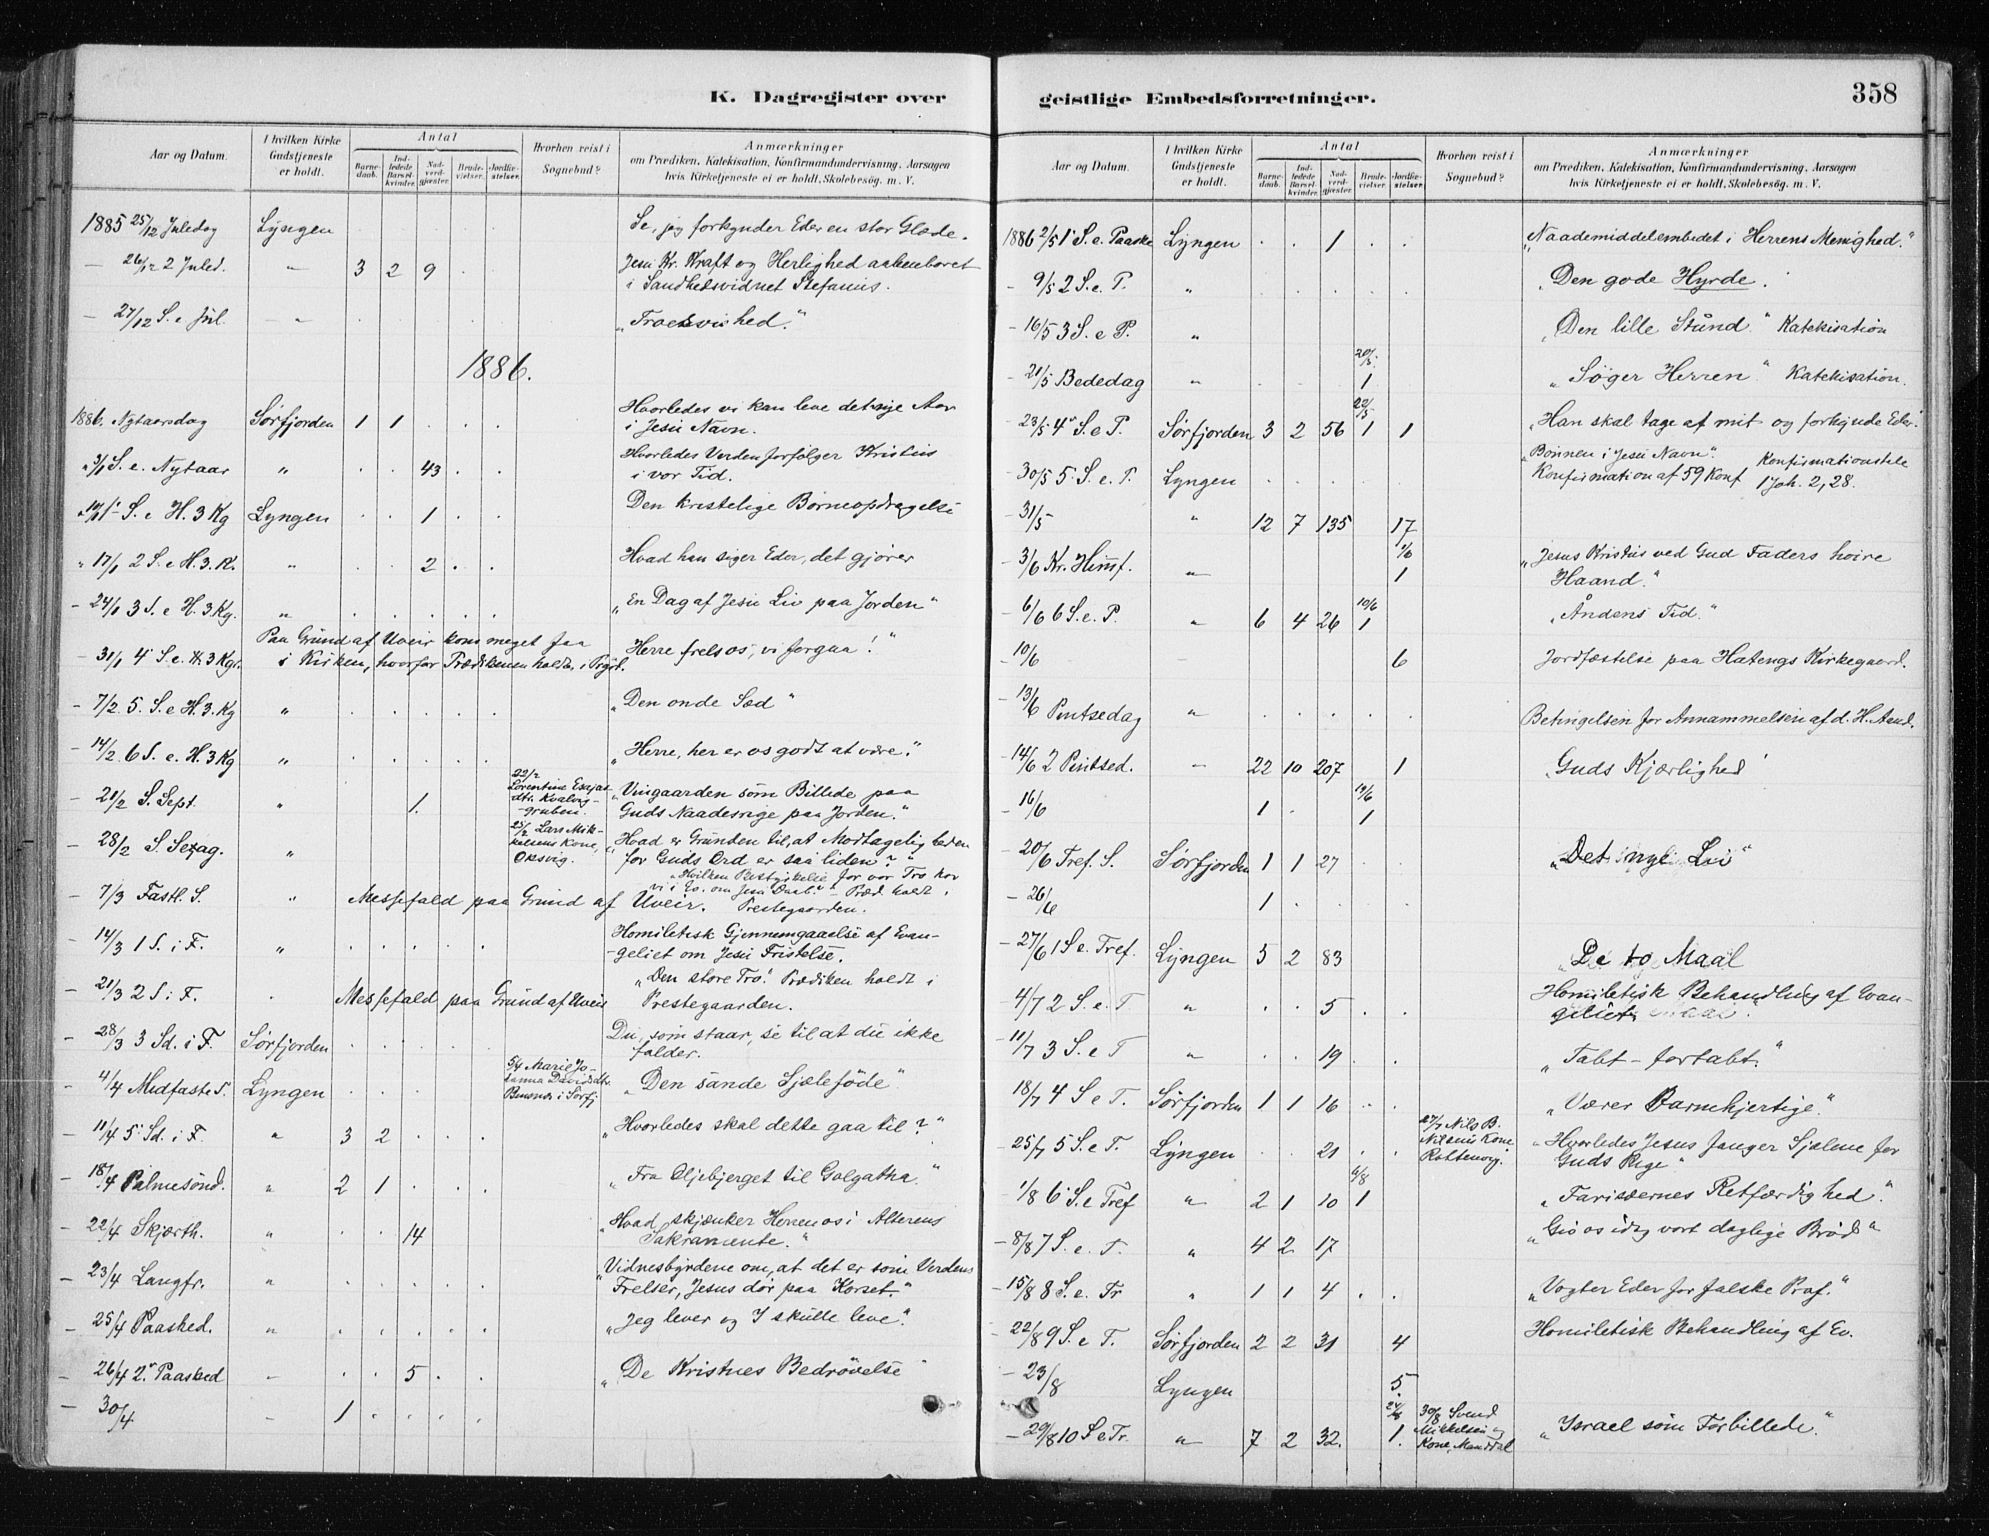 K. Dagregister over
Aar og Datum.
I hvilken Kirke Gudstjeneste er holdt.
Antal
Barnedaab.
Indledede Barselkvinder.
Nadverdgjæster.
Brudevielser.
Jordfæstelser.
Hvorhen reist i Sognebud?
Anmærkninger
om Prædiken, Katekisation, Konfirmandundervisning, Aarsagen
hvis Kirketjeneste ei er holdt, Skolebesög. m. V.
1885 25/12 Juledag Lyngen . . . . Se, jeg forkynder Eder en stor Glæde.
– 26/12 2 Juled. " 3 2 9 . Jesu Kr. Kraft og Herlighed aabenbaret
i Sandhedsvidnet Stefanus.
– 27/12 S. e Jul. " . . . . „Troesvished."
1886.
1886. Nytaarsdag Sørfjorden 1 1 . . . Hvorledes vi kan leve det nye Aar
i Jesu Navn.
" 3/1 S. e. Nytaar " . . 43 . . Hvorledes Verden forfølger Kristus
i vor Tid.
" 10/1 1' S. e H. 3 Kg Lyngen . . 1 . . Den kristelige Børneopdragelse
" 17/1 2 S. e H. 3. K. " . . 2 . . Hvad han siger Eder, det gjører
– 24/1 3 S. e H. 3 Kg. " . . . . . „En Dag af Jesu Liv paa Jorden"
Paa Grund af Uveir kom meget faa
– 31/1 4' S. e. H. 3 Kg. i Kirken, hvorfor Prædikenen holdt i Prgd. „Herre frels os, vi forgaa!"
– 7/2 5. S. e H. 3. Kg " . . . . . „Den onde Sæd"
– 14/2 6 S. e. H. 3 Kg " . . . . . „Herre, her er os godt at være."
– 21/2 S. Sept. " . . 1. 22/2 Lorentine Esajas-
dtr. Kvalvig-
gruben. „Vingaarden som Billede paa
Guds Naadesrige paa Jorden."
– 28/2 S. Sexag. " 25/2 Lars Mik-
kelsens Kone,
Oksvig. „Hvad er Grunden til, at Modtageligheden
for Guds Ord er saa liden?"
– 7/3 Fastl. S. " Messefald paa Grund af Uveir. „Hvilken Bestyrkelse for vor Tro har
vi i Ev. om Jesu Daab?" Præd. holdt i
Prestegaarden.
– 14/3 1 S. i F. " . . . . . Homiletisk Gjennemgaaelse af Evan-
geliet om Jesu Fristelse.
– 21/3 2 S. i F. . Messefald paa Grund af Uveir „Den store Tro! Prædiken holdt i
Prestegaarden.
– 28/3 3 Sd. i F. Sørfjorden . . . . . Du, som staar, se til at du ikke
falder.
– 4/4 Midfaste S. Lyngen . . . . 5/4 Marie Jo-
hanna Davidsdtr.
i Sørfj „Den sande Sjæleføde"
– 11/4 5' Sd. i F. " 3 2 . . . „Hvorledes skal dette gaa til?"
– 18/4 Palmesønd. " 2 1 . . . „Fra Oljebjerget til Golgatha."
– 22/4 Skjærth. " . . 14 „Hvad skjænker Herren os i Alterens
Sakramente."
– 23/4 Langfr. " . . . . . „Vidnesbyrdene om, at det er som Verdens
Frelser, Jesus dør paa Korset."
– 25/4 Paasked. " . . . . . „Jeg lever og I skulle leve."
– 26/4 2. Paasked – . . 5 . . „De Kristnes Bedrøvelse"
– 30/4 – 1 . . . .
geistlige Embedsforretninger.
358
Aar og Datum.
I hvilken Kirke Gudstjeneste er holdt.
Antal
Barnedaab.
Indledede Barselkvinder.
Nadverdgjæster.
Brudevielser.
Jordfæstelser.
Hvorhen reist i Sognebud?
Anmærkninger
om Prædiken, Katekisation, Konfirmandundervisning, Aarsagen
hvis Kirketjeneste ei er holdt, Skolebesög. m. V.
1886 2/5 1' S. e. Paaske Lyngen . . 1 . . „Naademiddelembedet i Herrens Menighed."
– 9/5 2 S. e. P. " . . . . . „Den gode Hyrde.
– 16/5 3 S. e P. " „Den lille Stund." Katekisation
– 21/5 Bededag " . . . 20/5 1 „Søger Herren." Katekisation.
– 23/5 4' S. e P. Sørfjorden 3 2 56 22/5 1 1 „Han skal tage af mit og forkynde Eder"
– 30/5 5' S. e. P. Lyngen . . . . . „Bønnen i Jesu Navn." Konfirmationstale
Konfirmation af 59 Konf 1 Joh. 2, 28.
– 31/5 " 12 7 135 17
– 3/6 Kr. Himf. " 1/6 1 „Jesus Kristus ved Gud Faders høire
Haand."
– 6/6 6 S. e. P. " 6 4 26 10/6 1 „Åndens Tid."
– 10/6 – 6 Jordfæstelse paa Hatengs Kirkegaard.
– 13/6 Pintsedag " . . . . . Betingelsen for Annammelsen af d. H. Aand.
– 14/6 2 Pintsed. – 22 10 207 1 „Guds Kjærlighed"
– 16/6 1 . 19/6 1
– 20/6 Tref. S. Sørfjorden 1 1 27 . . „Det nye Liv"
– 26/6 1 . . . .
– 27/6 1 S e. Tref. Lyngen 5 2 83 „De to Maal
– 4/7 2 S. e. T " . . 5 . . Homiletisk Behandling af Evan-
geliet
– 11/7 3 S. e T " . . 19 . . „Tabt – fortabt."
– 18/7 4 S e T. Sørfjorden 1 1 16 . . „Værer Barmhjertige."
– 25/7 5 S. e T. Lyngen . . 21 . . 27/7 Nils B.
Nilsens Kone
„Hvorledes Jesus fanger Sjælene for
Guds Rige"
– 1/8 6' S. e Tref " 2 1 10 4/8 1 „Farisæernes Retfærdighed."
– 8/8 7 S. e. T. " 4 2 17 „Giv os idag vort daglige Brød"
– 15/8 8 S. e. Tr " 1 1 4 . . „Vogter Eder for falske Prof."
– 22/8 9 S. e T. Sørfjorden 2 2 31 4 Homiletisk Behandling af Ev.
– 23/8 Lyngen 5
– 29/8 10 S e Tr. " 7 2 32. 24/8 1. 30/8 Svend
Mikkelsen og
Kone, Manddal „Israel som Forbillede."